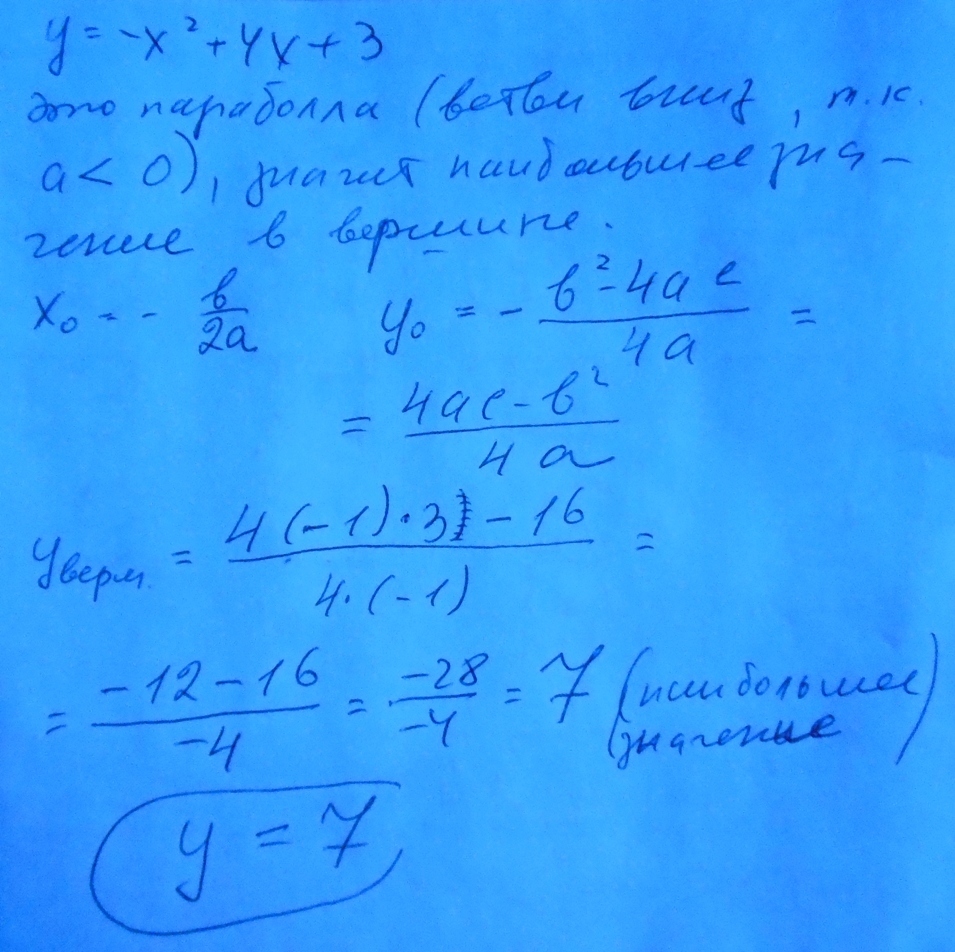 y = -x² + 4x + 3
это параболла (ветви вниз, т.к.
a < 0), значит наибольшее зна-
чение в вершине.
x₀ = - b/2a    y₀ = - (b² - 4ac)/4a =
= (4ac - b²)/4a
yверш. = (4(-1)·3 - 16)/(4·(-1)) =
= (-12 - 16)/(-4) = (-28)/(-4) = 7 (наибольшее
значение)
y = 7